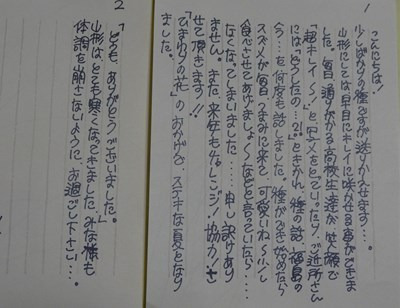 1
こんにちは!
少しばかりの種ですが送りかえせます…。
山形にしては早目にキレイに咲かせる事ができま
した。毎日通りがかる高校生達が笑顔で
「超キレイ〜!」と写メをとっていったり、ご近所さん
には「どうしたの…?」ときかれ、種の話、福島の
今…を何度も話しました。種ができ始めたら
スズメが毎日つまみに来て可愛いね、少し
食べさせてあげましょ〜などと言っていたら…
なくなってしまいました……申し訳あり
ません。また来年もチャレンジ!協力!さ
せて頂きます!!
「ひまわりの花」のおかげで、ステキな夏となり
ました。
2
「どうも、ありがとうございました。」
山形はとても寒くなってきました。みな様も
体調を崩さないように、お過ごし下さい…。